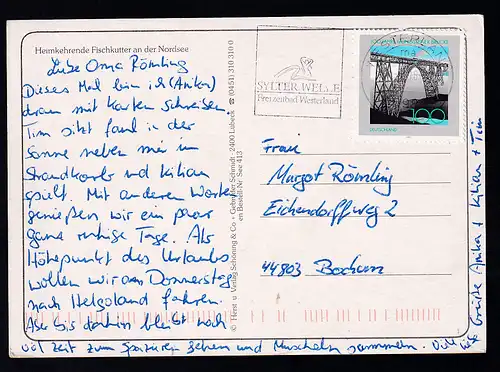 Heimkehrende Fischkutter an der Nordsee
Liebe Oma Römling
Dieses Mal bin ich (Anika)
dran mit Karten schreiben.
Tim sitzt faul in der
Sonne neben mir im
Strandkorb und Kilian
spielt. Mit anderen Worten
genießen wir ein paar
ganz ruhige Tage. Als
Höhepunkt des Urlaubs
wollen wir am Donnerstag
nach Helgoland fahren.
Aber bis dahin bleibt noch
viel Zeit zum spazieren gehen und Muscheln sammeln. Viele
liebe Grüße Anika + Kilian + Tim
© Horst u. Verlag Schöning & Co + Gebrüder Schmidt · 2400 Lübeck ☎ (0451) 310 310-0
Bestell-Nr. See 413
SYLTER WELLE
Freizeitbad Westerland
DEUTSCHLAND
100
Frau
Margot Römling
Eichendorffweg 2
44803 Bochum